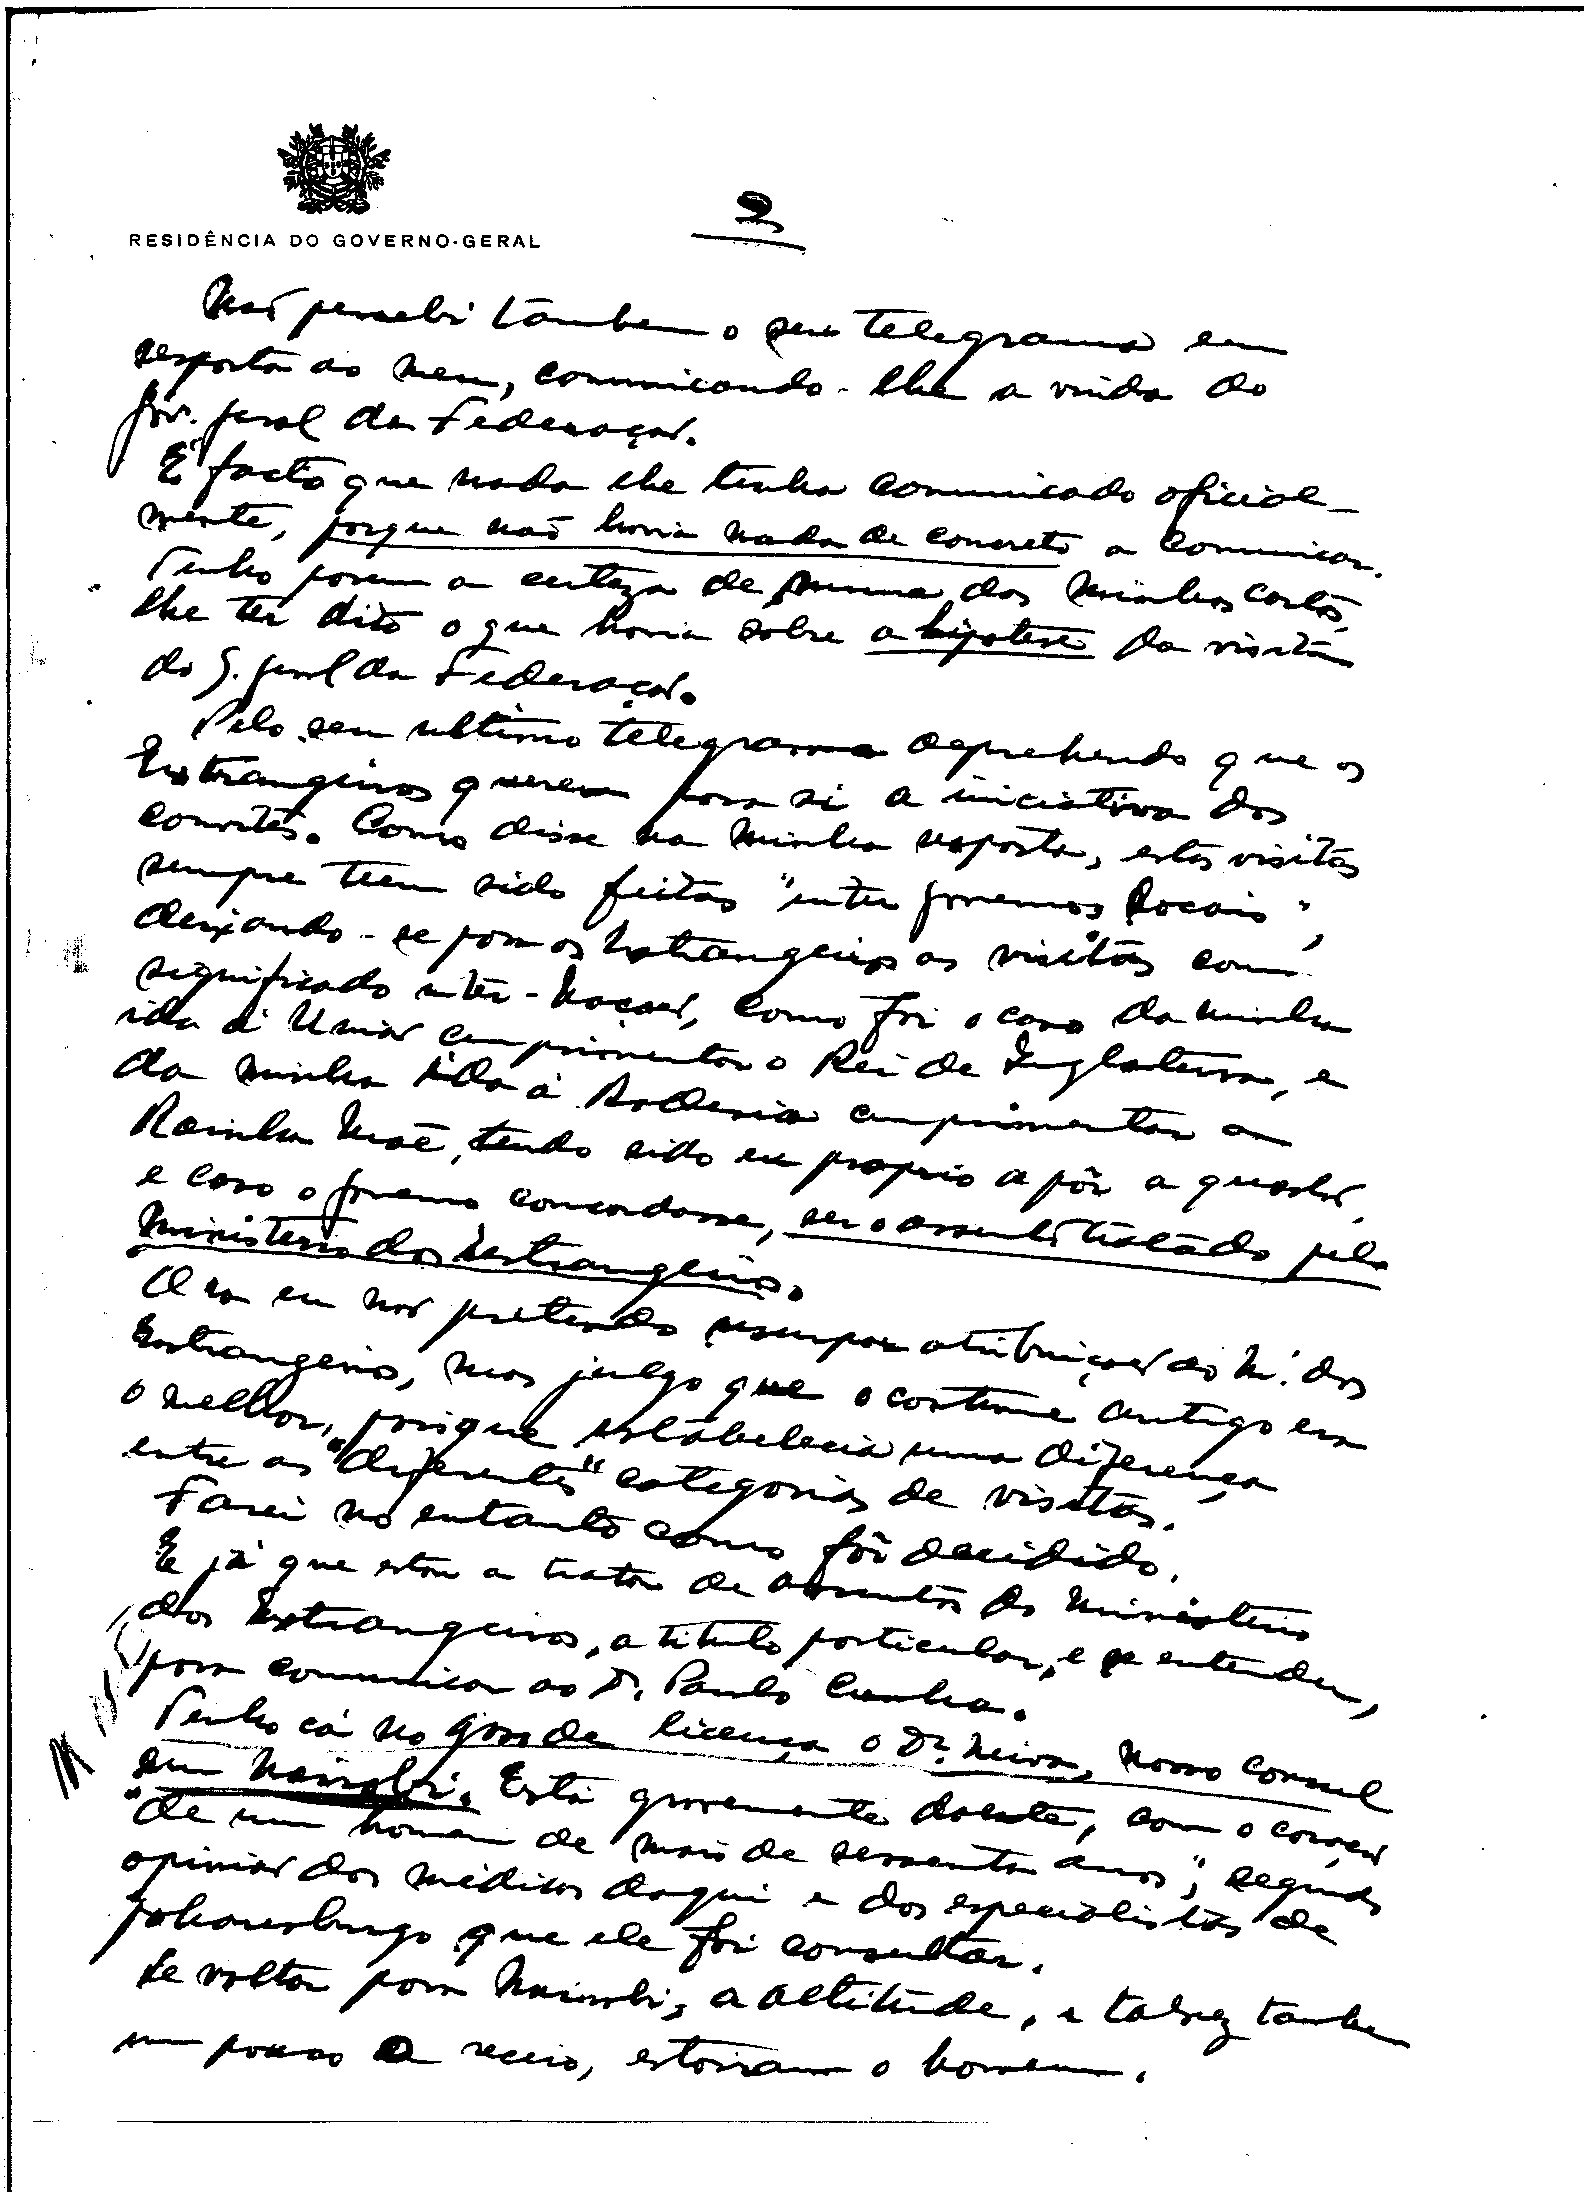 RESIDÊNCIA DO GOVERNO-GERAL
2
Não percebi tambem o seu telegrama em
resposta ao meu, comunicando-lhe a vinda do
Gov. Geral da Federação.
É facto que nada lhe tinha comunicado oficial-
mente, porque não havia nada de concreto a comunicar.
Tenho porem a certeza de numa das minhas cartas,
lhe ter dito o que havia sobre a hipotese da visita
do G. Geral da Federação.
Pelo seu ultimo telegrama deprehendo que os
Extrangeiros querem para si a iniciativa dos
convites. Como disse na minha resposta, estas visitas
sempre teem sido feitas "inter governos locais",
deixando-se para os Extrangeiros as visitas com
significado inter-Nações, como foi o caso da minha
ida á União cumprimentar o Rei de Inglaterra, e
da minha ida á Rodesia cumprimentar a
Rainha Mãe, tendo sido eu proprio a pôr a questão,
e caso o governo concordasse, ser o assunto tratado pelo
Ministerio dos Extrangeiros.
Ora eu não pretendo usurpar atribuições ao M. dos
Extrangeiros, mas julgo que o costume antigo era
o melhor, porque estabelecia uma diferença
entre as "diferentes" categorias de visitas.
Farei no entanto como fôr decidido.
E já que estou a tratar de assuntos do Ministerio
dos Extrangeiros, a titulo particular, e se entender,
para comunicar ao D. Paulo Cunha.
Tenho cá no goso de licença o Dr. Neiva, nosso consul
em Nairobi. Está gravemente doente, com o coração
"de um homem de mais de sessenta anos", segundo
opinião dos médicos daqui e dos especialistas de
Johanesburgo que ele foi consultar.
Se voltar para Nairobi, a altitude, e talvez tambem
um pouco o receio, estoiram o homem.